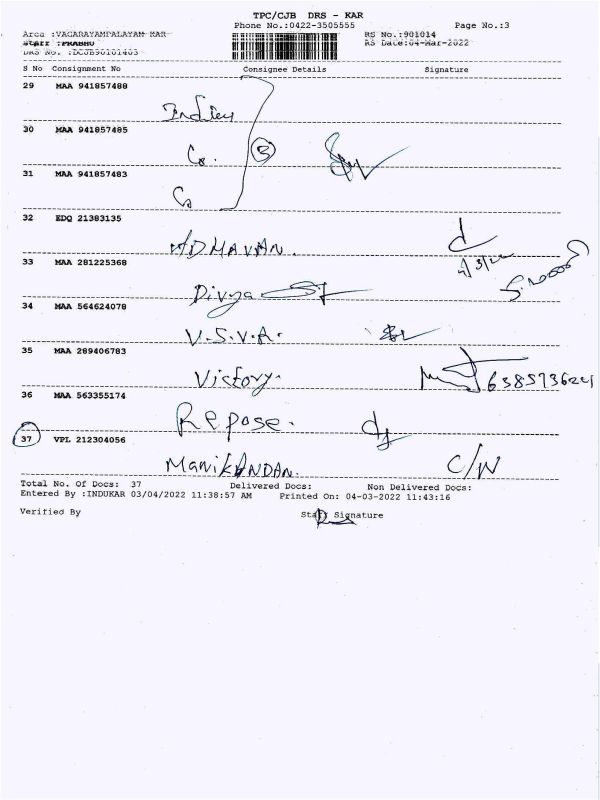 TPC/CJB DRS - KAR
Phone No.:0422-3505555 Page No.:3
Area :VAGARAYAMPALAYAM KAR RS No.:901014
Staff :PRABHU RS Date:04-Mar-2022
DRS No. :DCJB90101403
S No Consignment No Consignee Details Signature
29 MAA 941857488
30 MAA 941857485
Co. 3
31 MAA 941857483
Co
32 EDQ 21383135
33 MAA 281225368
Divya
34 MAA 564624078
V.S.V.A.
35 MAA 289406783
Victory.
36 MAA 563355174
Repose.
37 VPL 212304056
ManiKANDAN. C/N
Total No. Of Docs: 37 Delivered Docs: Non Delivered Docs:
Entered By :INDUKAR 03/04/2022 11:38:57 AM Printed On: 04-03-2022 11:43:16
Verified By Staff Signature